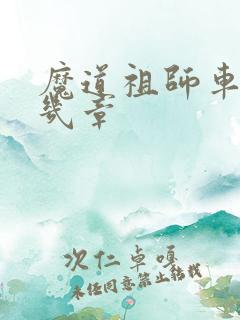 魔道祖師車
幾章
次仁卓嘎
未经同意禁止转载